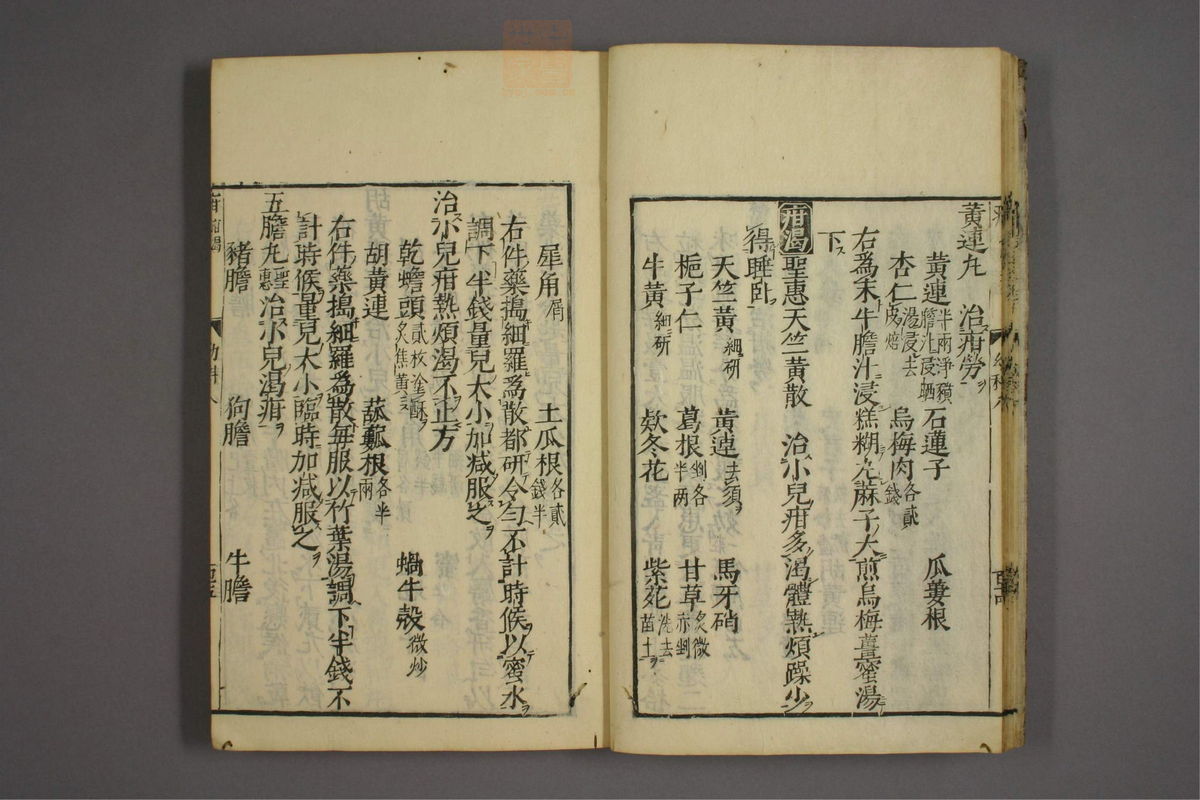 黃連丸 治疳勞
黃連半兩淨豬膽汁浸晒 石蓮子 瓜蔞根
杏仁湯浸去皮焙 烏梅肉各貳錢
右爲末牛膽汁浸糕糊丸麻子大煎烏梅薑蜜湯
下
疳渴 聖惠天竺黃散 治小兒疳多渴體熱煩躁少
得睡臥
天竺黃細研 黃連去須 馬牙硝
梔子仁 葛根剉各半兩 甘草炙微赤剉
牛黃細研 欵冬花 紫菀洗去苗土
犀角屑 土瓜根各貳錢半
右件藥搗細羅爲散都研令勻不計時候以蜜水
調下半錢量兒大小加减服之
治小兒疳熱煩渴不止方
乾蟾頭貳枚塗酥炙焦黃 蝸牛殼微炒
胡黃連 苽蔞根各半兩
右件藥搗細羅爲散每服以竹葉湯調下半錢不
計時候量兒大小臨時加减服之
五膽丸聖惠 治小兒渴疳
豬膽 狗膽 牛膽